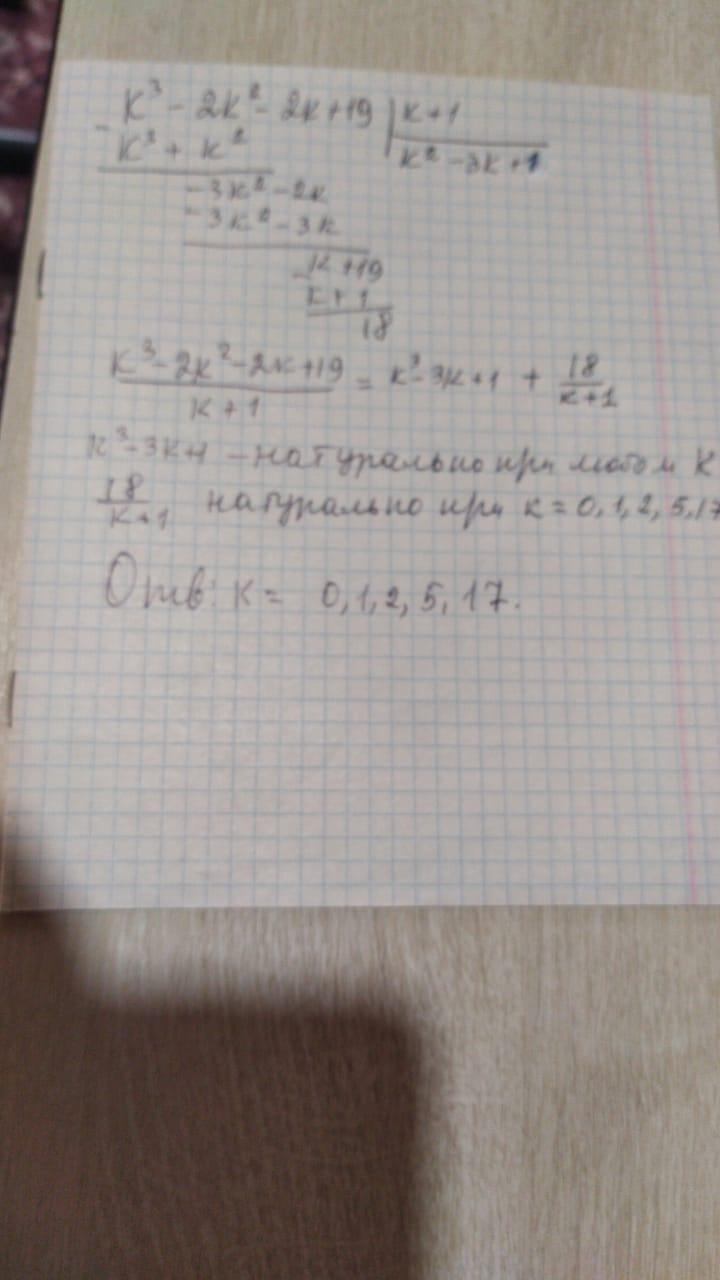 k³ - 2k² - 2k + 19 | k + 1
- k³ + k² | k² - 3k + 1
- 3k² - 2k
- 3k² - 3k
- k + 19
k + 1
18
k³ - 2k² - 2k + 19 / k + 1 = k² - 3k + 1 + 18 / k + 1
k² - 3k + 1 - натурально при любом k
18 / k + 1 натурально при k = 0, 1, 2, 5, 17
Отв: k = 0, 1, 2, 5, 17.